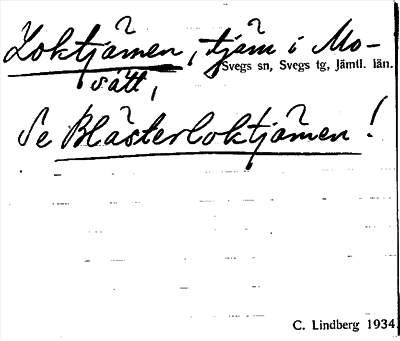 Loktjärnen, tjärn i Mo-
sätt,
Svegs sn, Svegs tg, Jämtl. län.
Se Blästerloktjärnen!
C. Lindberg 1934.